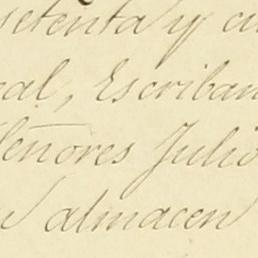 setenta y cu
cal, Escriban
Señores Julio
almacen